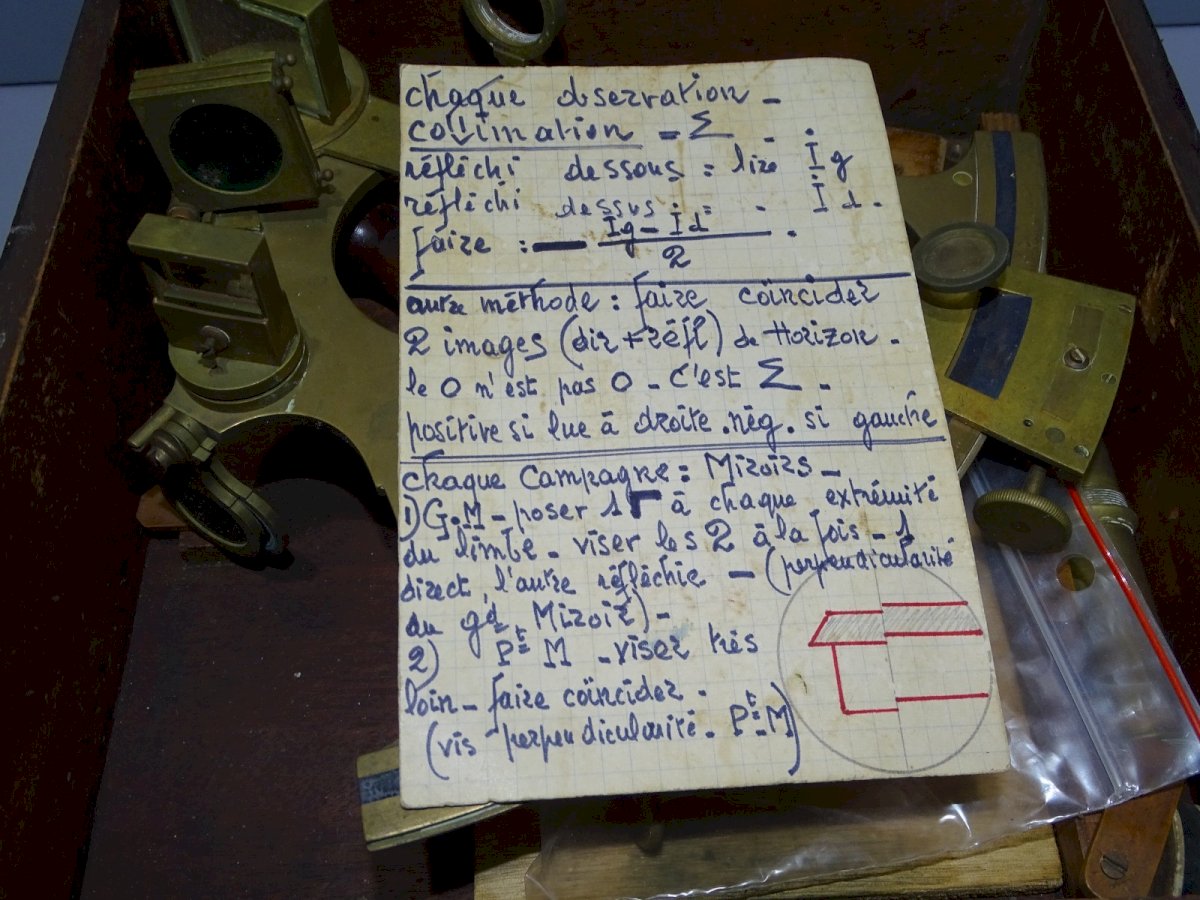 chaque observation -
collimation = Σ - .
réfléchi dessous = lire Ig
réfléchi dessus = - Id.
faire : — Ig - Id / 2 .
autre méthode : faire coïncider
2 images (dir + réfl) de Horizon -
le O n'est pas O - C'est Σ -
positive si lue à droite . nég . si gauche
chaque Campagne : Miroirs -
1) G.M - poser 1 à chaque extrémité
du limbe - viser les 2 à la fois - 1
direct, l'autre réfléchie - (perpendicularité
du gd Miroir) -
2) Pt M - viser très
loin - faire coïncider -
(vis perpendicularité - Pt - M)